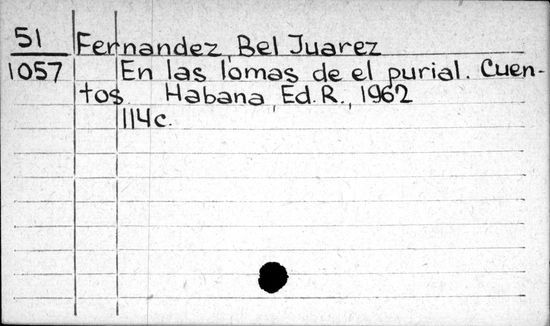 51 Fernandez, Bel Juarez
1057 En las lomas de el purial. Cuen-
tos. Habana, Ed. R., 1962
114c.